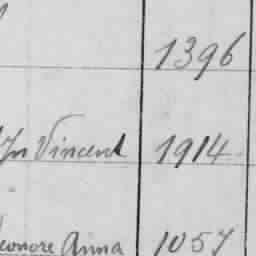 1396
Vincent 1914
eonore Anna 1057